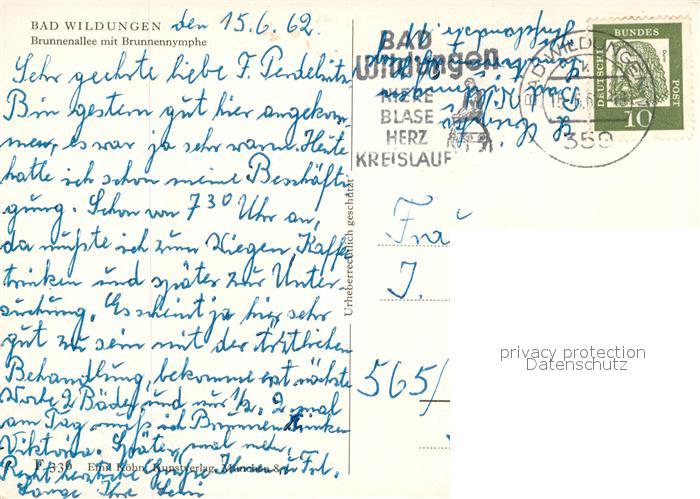 BAD WILDUNGEN den 15.6.62.
Brunnenallee mit Brunnennymphe
Sehr geehrte liebe F.
Bin gestern gut hier angekom-
men, es war ja sehr warm. Heute
hatte ich schon meine Beschäfti-
gung. Schon von 7 30 Uhr an,
da mußte ich zum Wiegen, Kaffee
trinken und später zur Unter-
suchung. Es scheint ja hier sehr
gut zu sein mit der ärztlichen
Behandlung, bekomme erst nächste
Woche 2 Bäder und nur 1/2, 2 mal
am Tag muß ich Brunnen trinken
Viktoria. Später mal mehr,
Recht herzliche Grüße Ihnen u. Frl.
Ihre
F 336 Emil Köhn, Kunstverlag, München 8
Urheberrechtlich geschützt
BAD
Wildungen
NIERE
BLASE
HERZ
KREISLAUF
BAD WILDUNGEN
359
DEUTSCHE
BUNDES
POST
10
Frau
J.
565/
privacy protection
Datenschutz